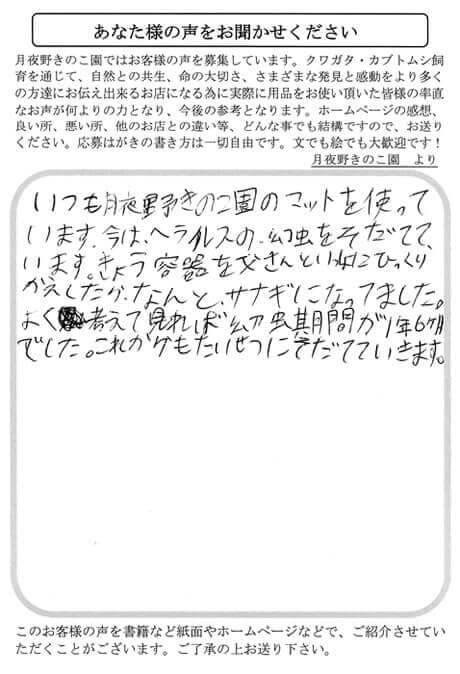 あなた様の声をお聞かせください
月夜野きのこ園ではお客様の声を募集しています。クワガタ・カブトムシ飼
育を通じて、自然との共生、命の大切さ、さまざまな発見と感動をより多く
の方達にお伝え出来るお店になる為に実際に用品をお使い頂いた皆様の率直
なお声が何よりの力となり、今後の参考となります。ホームページの感想、
良い所、悪い所、他のお店との違い等、どんな事でも結構ですので、お送り
ください。応募はがきの書き方は一切自由です。文でも絵でも大歓迎です！
月夜野きのこ園　より
いつも月夜野きのこ園のマットを使って
います。今は、ヘラクレスの幼虫をそだてて、
います。きょう容器を父さんといっしょにひっくり
がえしたが、なんと、サナギになってました。
よく考えて見れば幼虫期間が1年6ヶ月
でした。これからもたいせつにそだてていきます。
このお客様の声を書籍など紙面やホームページなどで、ご紹介させてい
ただくことがございます。ご了承の上お送り下さい。